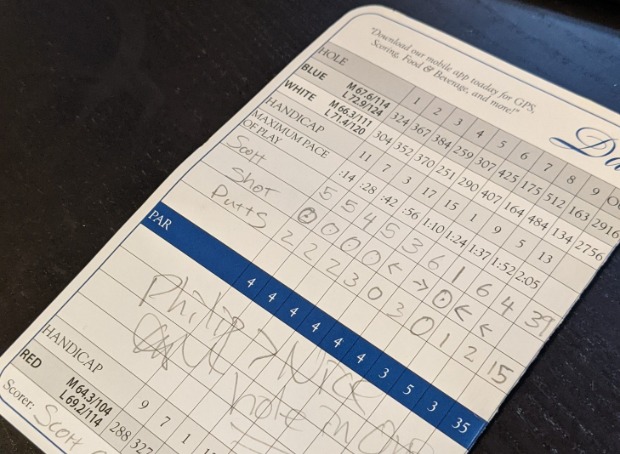 "Download our mobile app toaday for GPS,
Scoring, Food & Beverage, and more!"
HOLE 1 2 3 4 5 6 7 8 9
BLUE M 67.6/114 L 72.9/124 324 367 384 259 307 425 175 512 163 2916
WHITE M 66.3/111 L 71.4/120 304 352 370 251 290 407 164 484 134 2756
HANDICAP 11 7 3 17 15 1 9 5 13
MAXIMUM PACE OF PLAY :14 :28 :42 :56 1:10 1:24 1:37 1:52 2:05
Scott 5 5 4 5 3 6 1 6 4 39
Shot 0 0 0 0 < → 0 < <
Putts 2 2 2 3 0 3 0 1 2 15
PAR 4 4 4 4 4 4 3 5 3 35
Philip > Nice
hole in one
HANDICAP 9 7 1
RED M 64.3/104 L 69.2/114 288 327
Scorer: Scott